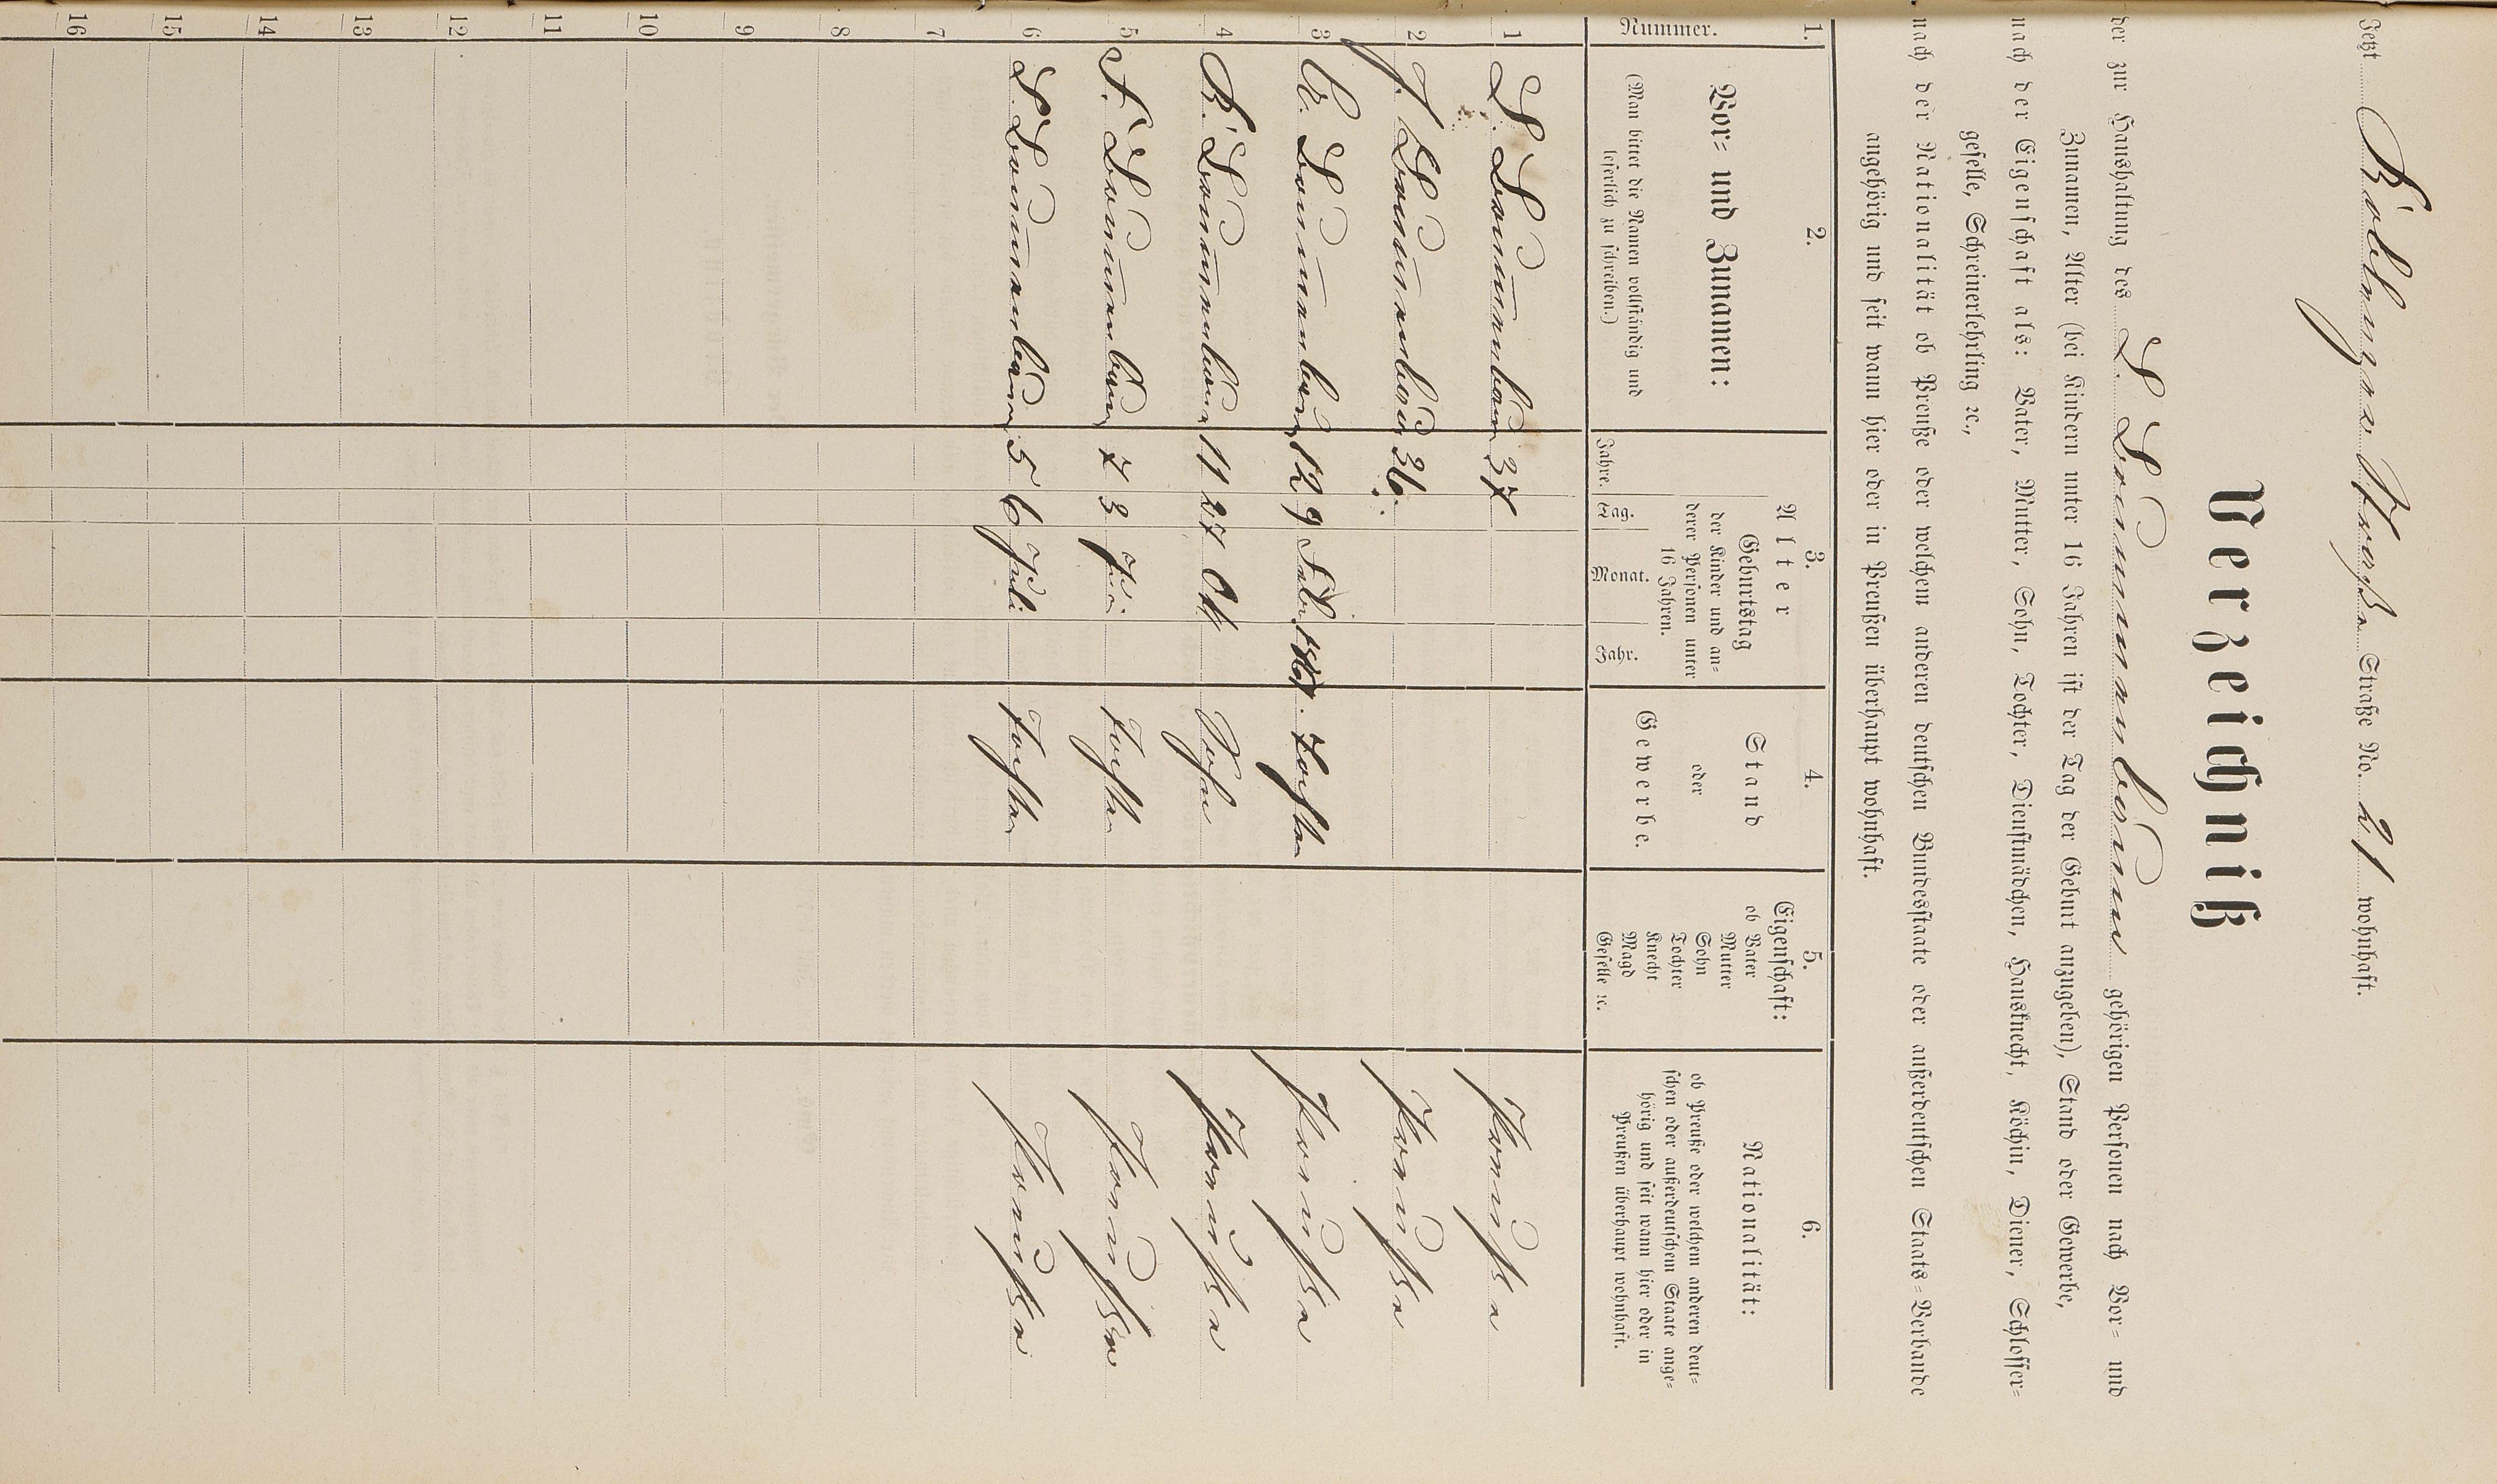 Jetzt Straße No. 21 wohnhaft.
Verzeichniß
der zur Haushaltung des L. gehörigen Personen nach Vor- und
Zunamen, Alter (bei Kindern unter 16 Jahren ist der Tag der Geburt anzugeben), Stand oder Gewerbe,
nach der Eigenschaft als: Vater, Mutter, Sohn, Tochter, Dienstmädchen, Hausknecht, Köchin, Diener, Schlosser-
geselle, Schreinerlehrling ꝛc.,
nach der Nationalität ob Preuße oder welchem anderen deutschen Bundesstaate oder außerdeutschen Staats-Verbande
angehörig und seit wann hier oder in Preußen überhaupt wohnhaft.
1. 2. 3. 4. 5. 6.
Nummer.
Vor- und Zunamen:
(Man bittet die Namen vollständig und
leserlich zu schreiben.)
Alter
Geburtstag
der Kinder und an-
derer Personen unter
16 Jahren.
Jahre. Tag. Monat. Jahr.
Stand
oder
Gewerbe.
Eigenschaft:
ob Vater
Mutter
Sohn
Tochter
Knecht
Magd
Geselle ꝛc.
Nationalität:
ob Preuße oder welchem anderen deut-
schen oder außerdeutschem Staate ange-
hörig und seit wann hier oder in
Preußen überhaupt wohnhaft.
1 L. 37 Preuße
2 J. 36. Preuße
3 12 9 Tochter Preuße
4 B. 11 27 Okt Sohn Preuße
5 F. 7 3 Tochter Preuße
6 L. 5 6 Juli Tochter Preuße
7
8
9
10
11
12
13
14
15
16